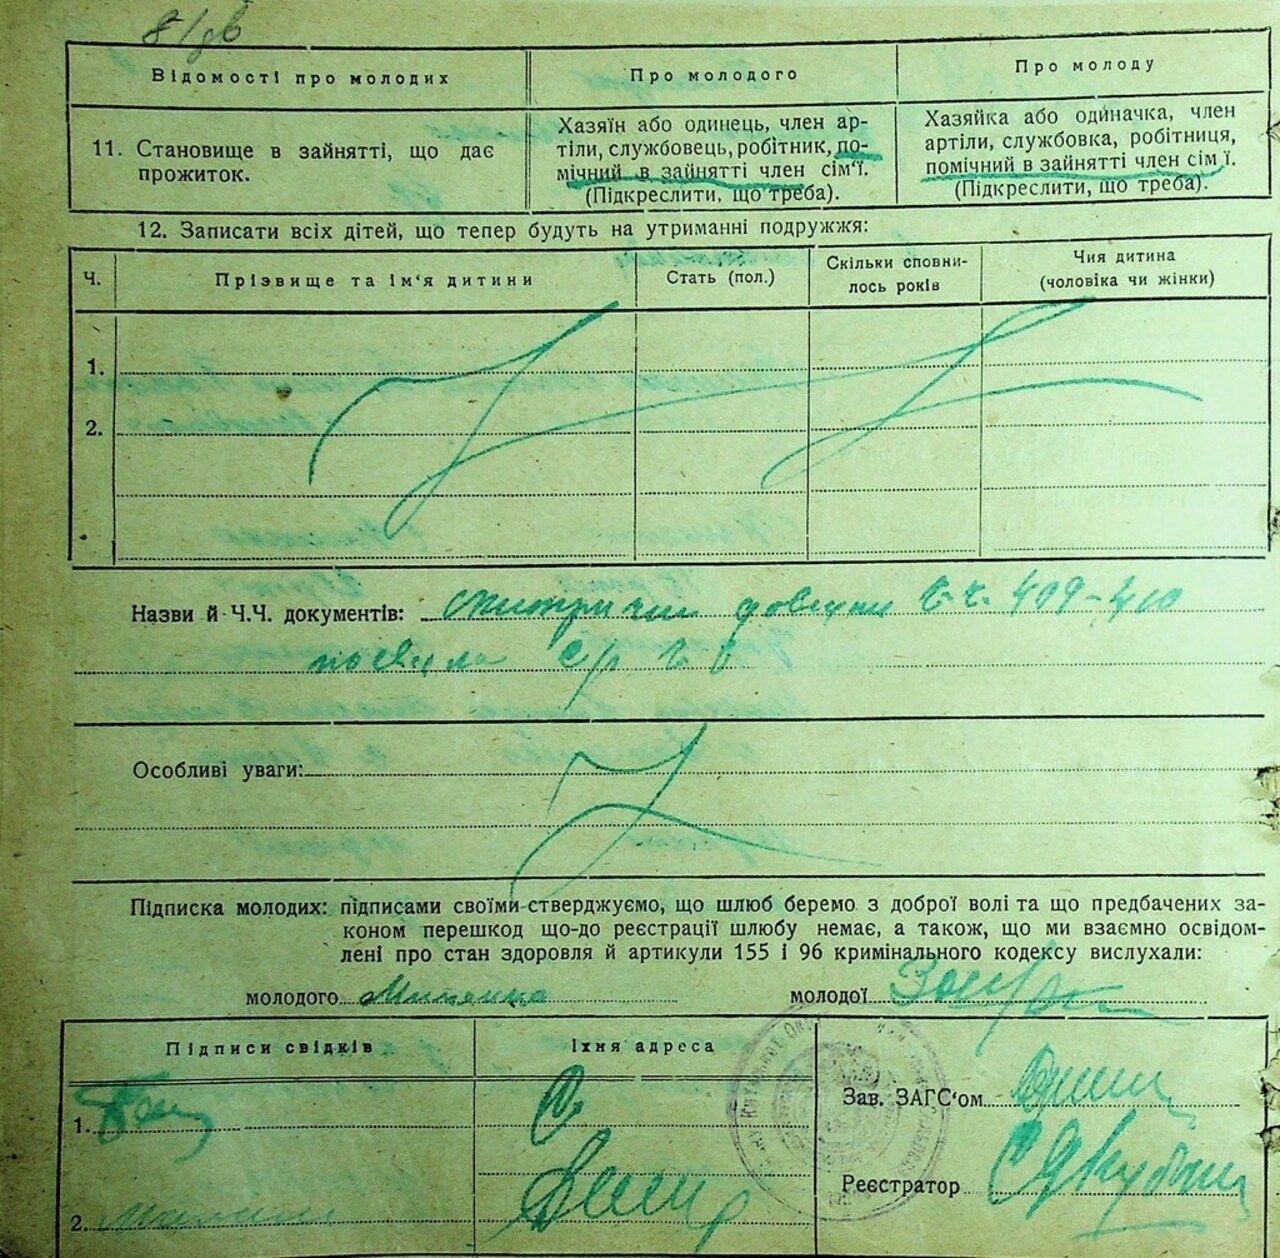 Відомості про молодих
Про молодого
Про молоду
11. Становище в зайнятті, що дає
прожиток.
Хазяїн або одинець, член ар-
тіли, службовець, робітник, по-
мічний в зайнятті член сім'ї.
(Підкреслити, що треба).
Хазяйка або одиначка, член
артіли, службовка, робітниця,
помічний в зайнятті член сім'ї.
(Підкреслити, що треба).
12. Записати всіх дітей, що тепер будуть на утриманні подружжя:
Ч.
Прізвище та ім'я дитини
Стать (пол.)
Скільки сповни-
лось років
Чия дитина
(чоловіка чи жінки)
1.
2.
Назви й Ч.Ч. документів: довідки ч.ч. 409-410
Особливі уваги:
Підписка молодих: підписами своїми стверджуємо, що шлюб беремо з доброї волі та що предбачених за-
коном перешкод що-до реєстрації шлюбу немає, а також, що ми взаємно освідом-
лені про стан здоровля й артикули 155 і 96 кримінального кодексу вислухали:
молодого
молодої
Підписи свідків
Їхня адреса
1.
Зав. ЗАГС'ом
Реєстратор
2.